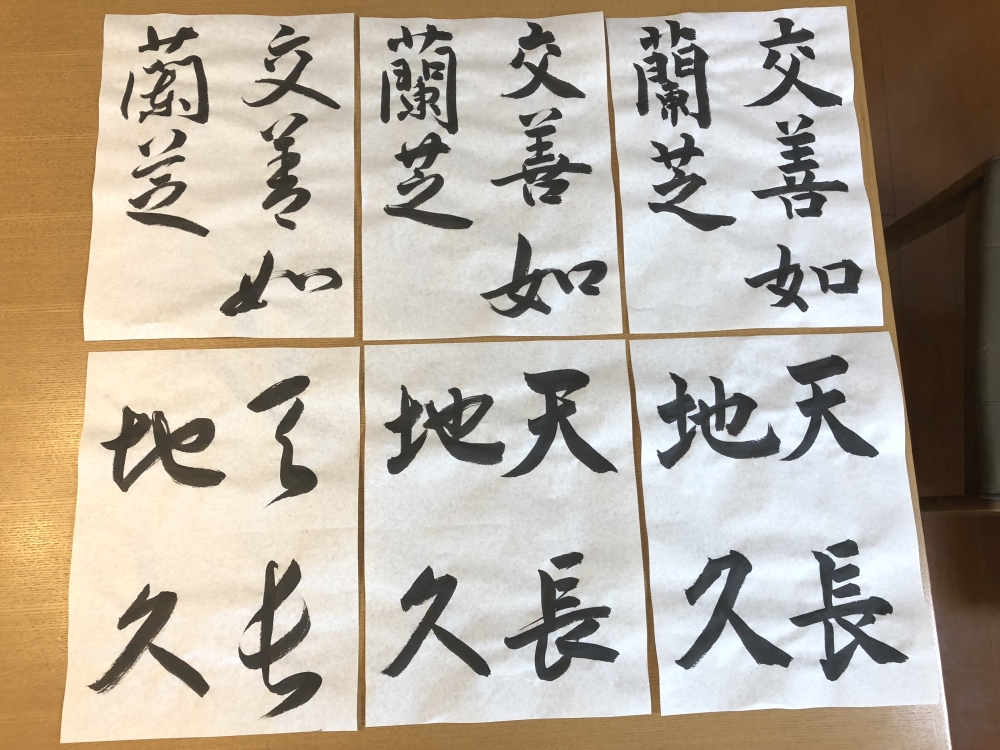 交善如
蘭芝
交善如
蘭芝
交善如
蘭芝
天長
地久
天長
地久
天長
地久